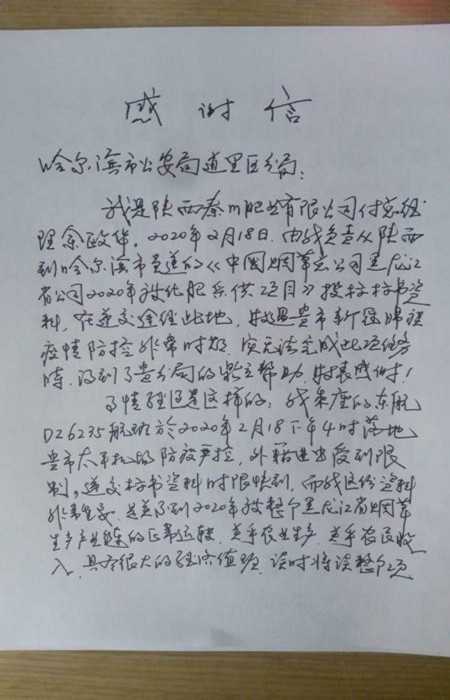 感谢信
哈尔滨市公安局道里区分局:
我是陕西秦川肥业有限公司付总经
理余政伟。2020年2月18日由我负责从陕西
到哈尔滨市呈递的《中国烟草总公司黑龙江
省公司2020年度化肥采供项目》投标标书资
料,在递交途经此地,特遇贵市新冠肺炎
疫情防控非常时期,实无法完成此项任务
时,得到了贵分局的鼎立帮助,特表感谢!
事情经过是这样的:我乘座的东航
DZ6235航班於2020年2月18下午4时落地
贵市太平机场防疫严控,外籍进出受到限
制,递交标书资料时限快到,而我这份资料
非常重要,是关系到2020年度整个黑龙江省烟草
生产产业链的正常运转,关乎农业生产,关乎农民收
入,具有很大的经济值班,误时将误整个项